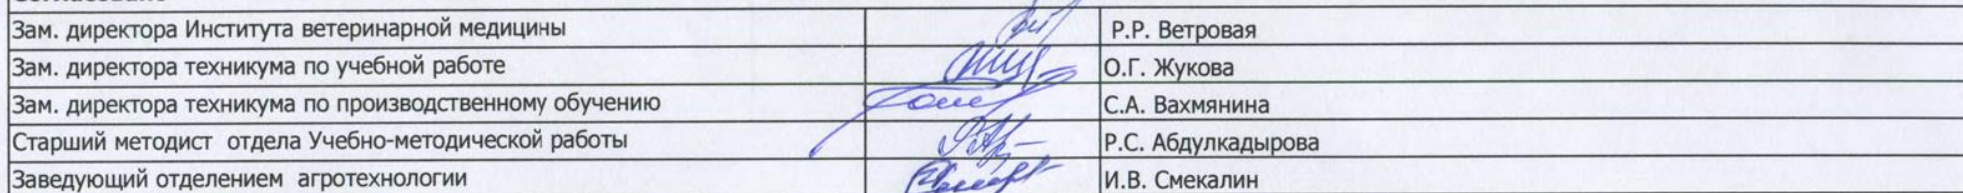 Зам. директора Института ветеринарной медицины Р.Р. Ветровая
Зам. директора техникума по учебной работе О.Г. Жукова
Зам. директора техникума по производственному обучению С.А. Вахмянина
Старший методист отдела Учебно-методической работы Р.С. Абдулкадырова
Заведующий отделением агротехнологии И.В. Смекалин